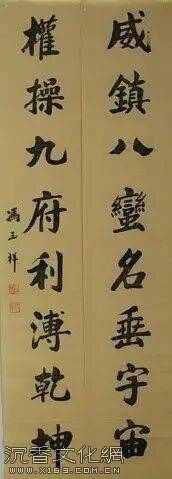 威鎮八蠻名垂宇宙
權操九府利溥乾坤
馮玉祥
沉香文化網
WWW.X163.COM.CN